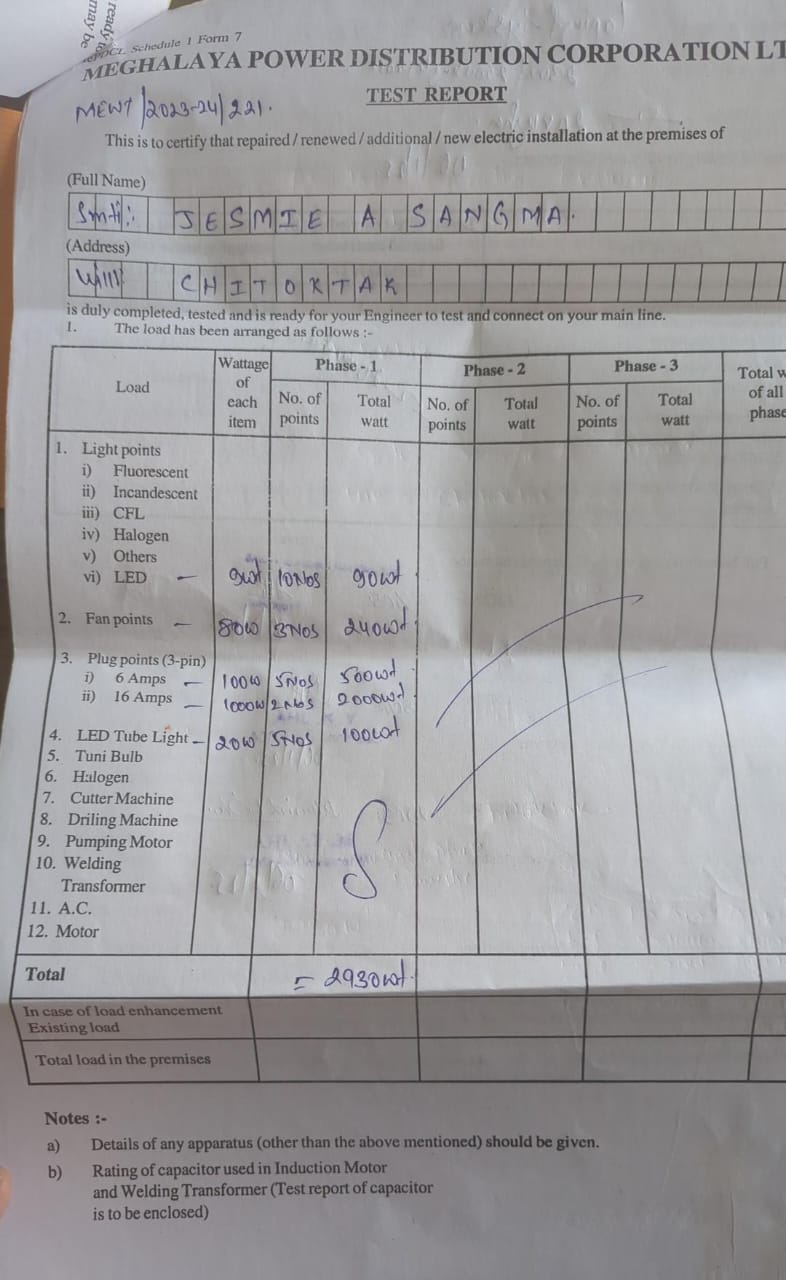 ready to
may be
MePDCL Schedule 1 Form 7
MEGHALAYA POWER DISTRIBUTION CORPORATION LT
TEST REPORT
MEWT/2023-24/221.
This is to certify that repaired / renewed / additional / new electric installation at the premises of
(Full Name)
Smti: JESMIE A SANGMA.
(Address)
Vill CHITOKTAK
is duly completed, tested and is ready for your Engineer to test and connect on your main line.
1. The load has been arranged as follows :-
Load Wattage of each item Phase - 1 Phase - 2 Phase - 3 Total w of all phase
No. of points Total watt No. of points Total watt No. of points Total watt
1. Light points
i) Fluorescent
ii) Incandescent
iii) CFL
iv) Halogen
v) Others
vi) LED - 9wt 10Nos 90wt
2. Fan points - 80W 3Nos 240wt
3. Plug points (3-pin)
i) 6 Amps - 100W 5Nos 500wt
ii) 16 Amps - 1000W 2Nos 2000wt
4. LED Tube Light - 20W 5Nos 100wt
5. Tuni Bulb
6. Halogen
7. Cutter Machine
8. Driling Machine
9. Pumping Motor
10. Welding
Transformer
11. A.C.
12. Motor
Total = 2930wt.
In case of load enhancement
Existing load
Total load in the premises
Notes :-
a) Details of any apparatus (other than the above mentioned) should be given.
b) Rating of capacitor used in Induction Motor
and Welding Transformer (Test report of capacitor
is to be enclosed)